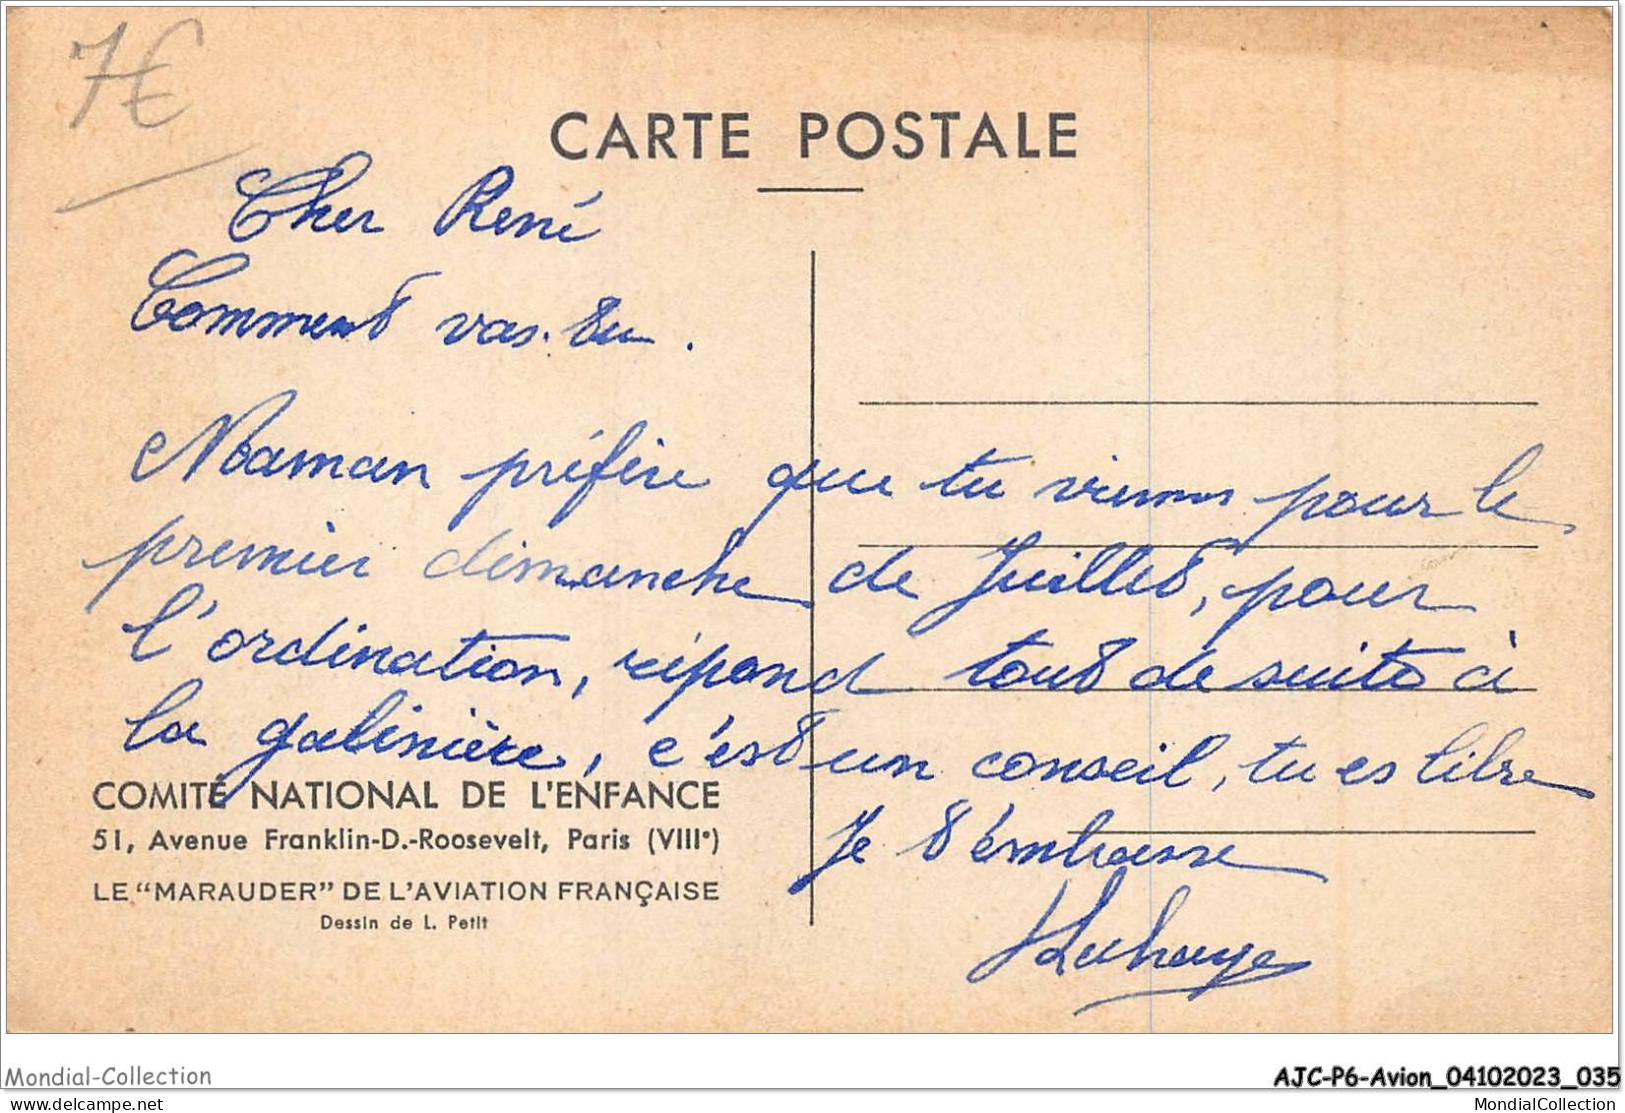 7€
CARTE POSTALE
Cher René
Comment vas-tu.
Maman préfère que tu viennes pour le
premier dimanche de Juillet, pour
l'ordination, répond tout de suite à
la galinière, c'est un conseil, tu es libre
COMITÉ NATIONAL DE L'ENFANCE
51, Avenue Franklin-D.-Roosevelt, Paris (VIIIe)
Je t'émbrasse
LE "MARAUDER" DE L'AVIATION FRANÇAISE
Dessin de L. Petit
Mondial-Collection
AJC-P6-Avion_04102023_035
delcampe.net
MondialCollection